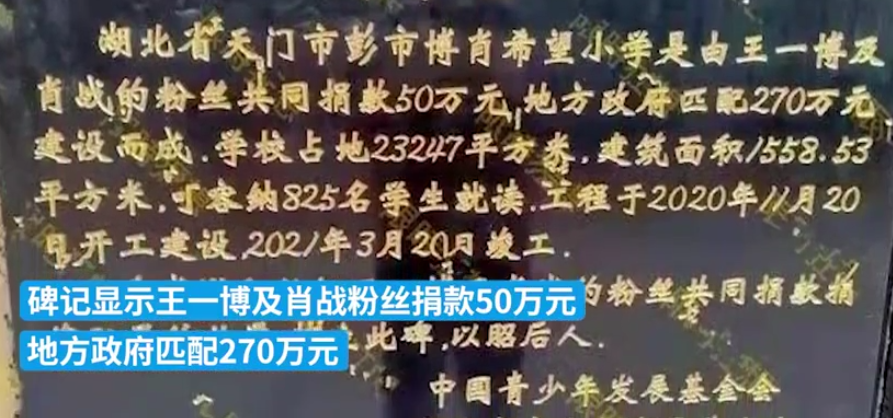 湖北省天门市彭市博肖希望小学是由王一博及
肖战的粉丝共同捐款50万元,地方政府匹配270万元
建设而成.学校占地23247平方米,建筑面积1558.53
平方米,可容纳825名学生就读.工程于2020年11月20
日开工建设,2021年3月20日竣工.
的粉丝共同捐款捐
碑记显示王一博及肖战粉丝捐款50万元
此碑,以昭后人.
地方政府匹配270万元
中国青少年发展基金会